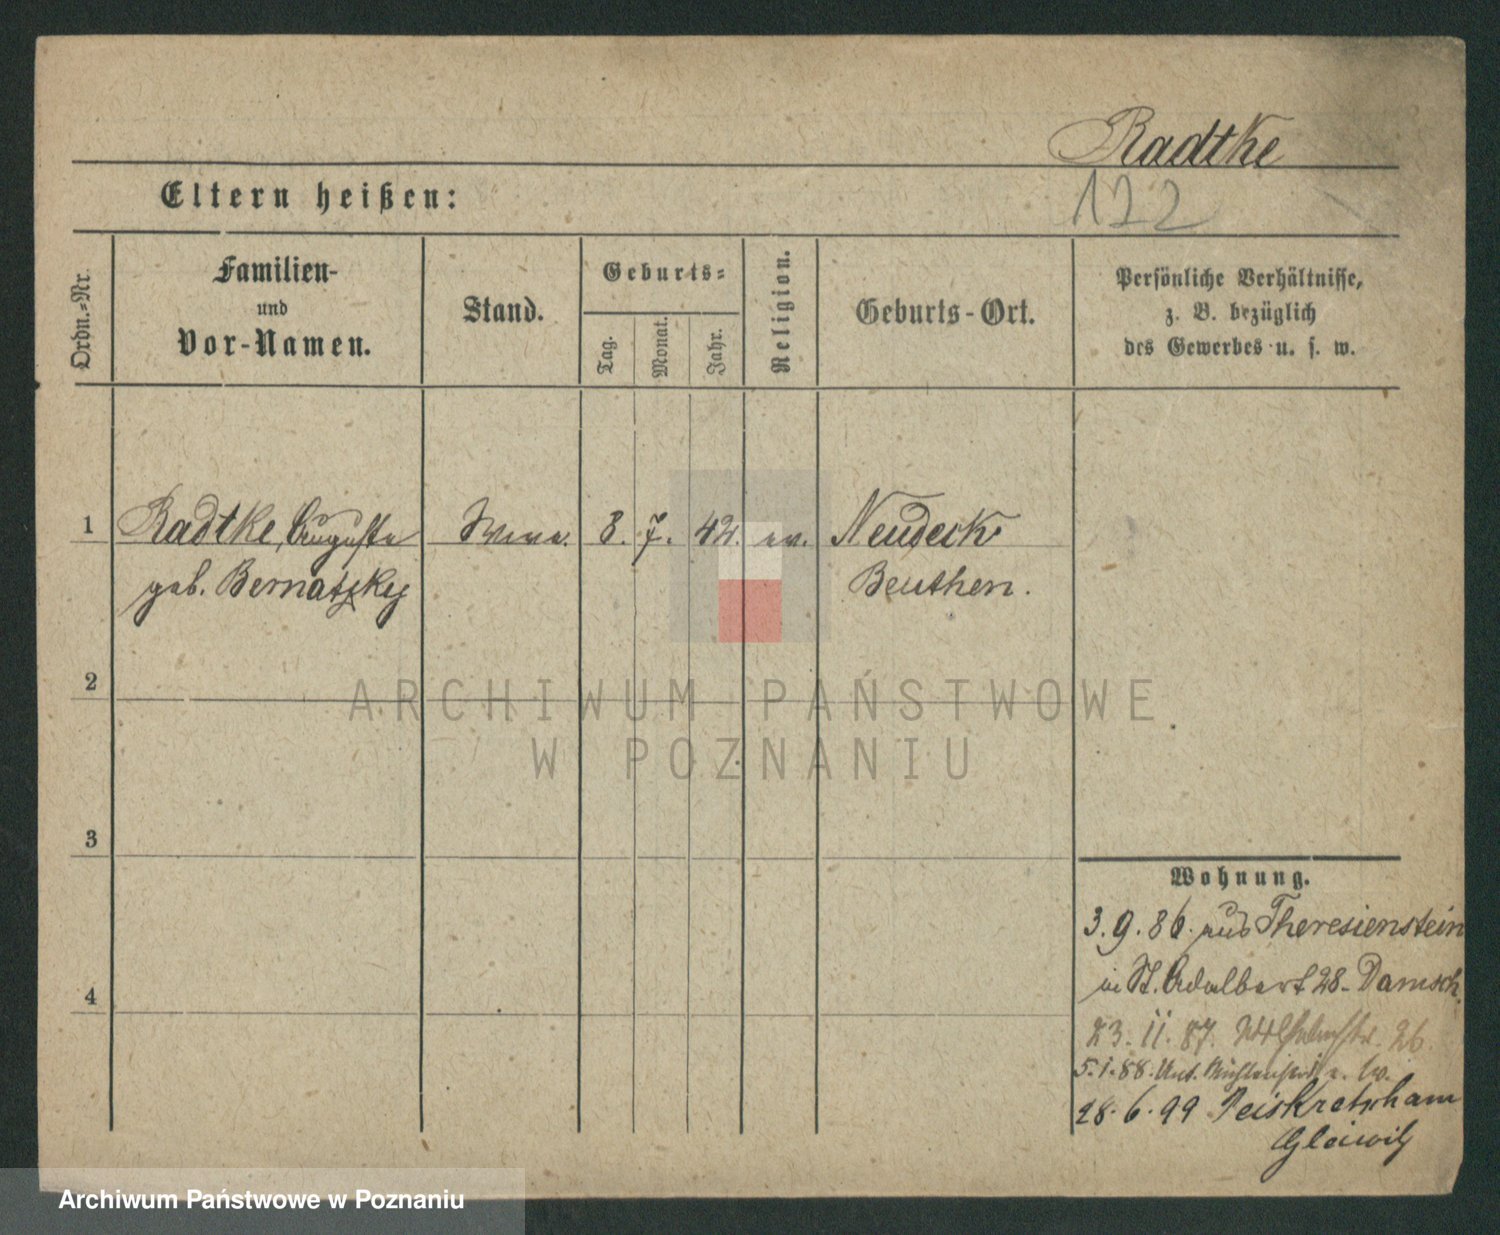 Radtke
Eltern heißen:
122
Ordn.-Nr.
Familien-
und
Vor-Namen.
Stand.
Geburts-
Tag.
Monat.
Jahr.
Religion.
Geburts-Ort.
Persönliche Verhältnisse,
z. B. bezüglich
des Gewerbes u. s. w.
1
Radtke, Auguste
geb. Bernatzky
Wwe.
8. 7. 42. ev.
Neudeck
Beuthen.
2
ARCHIWUM PAŃSTWOWE
W POZNANIU
3
4
Wohnung.
3. 9. 86. aus Theresienstein
in St. Adalbert 28. Damsch.
23. 11. 87. 26.
5. 1. 88. Unt.
28. 6. 99 Peiskretscham
Gleiwitz
Archiwum Państwowe w Poznaniu